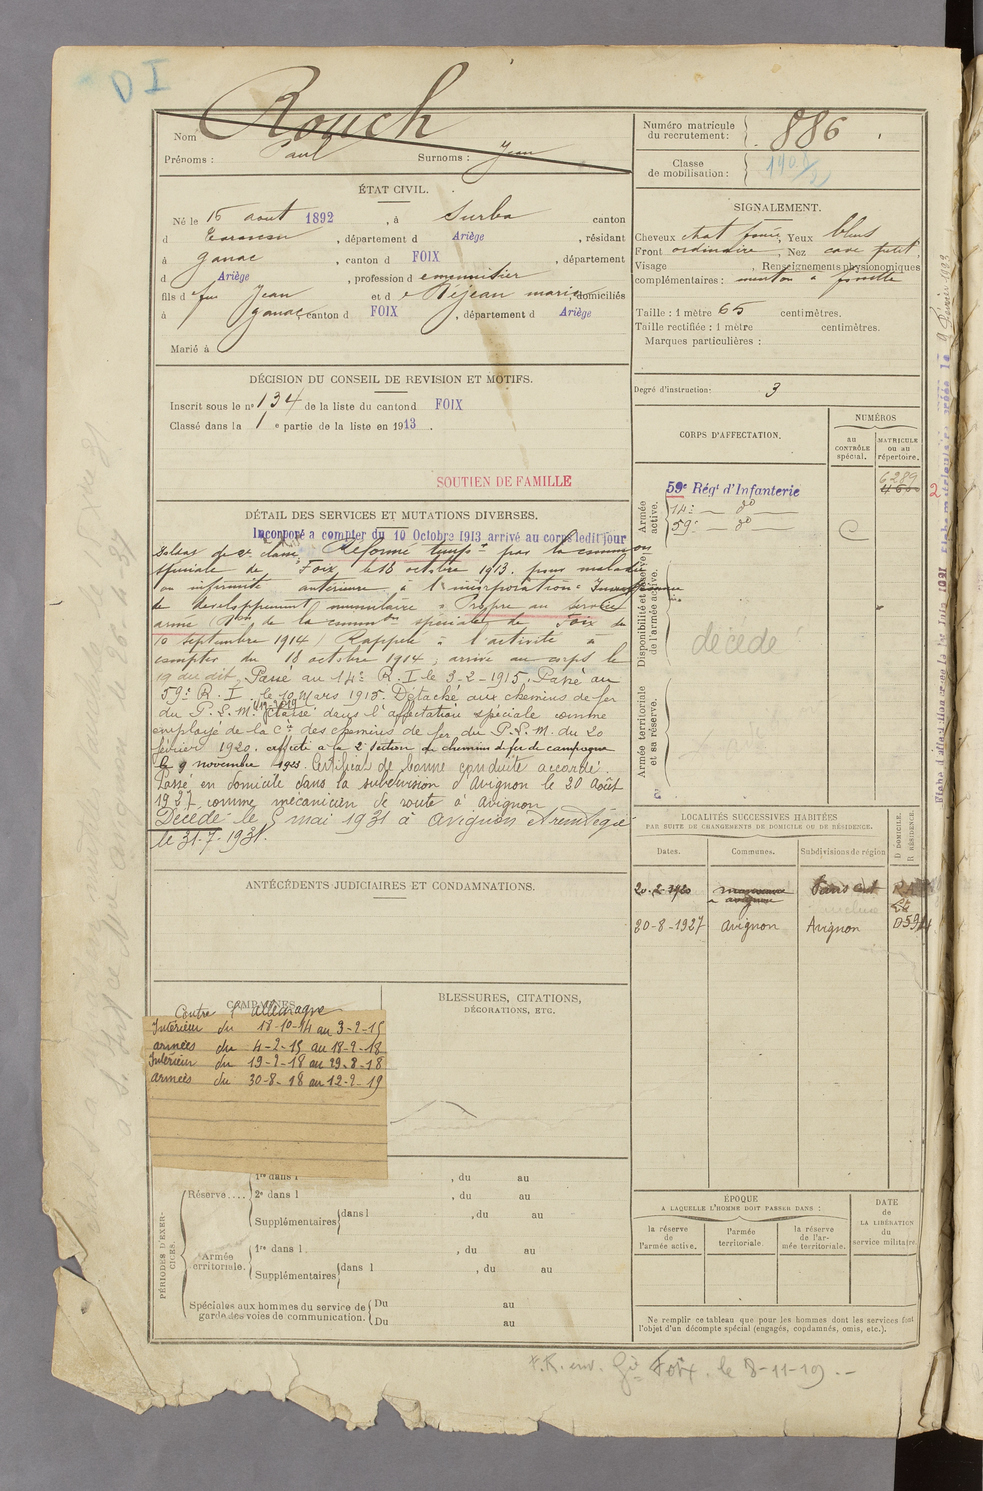 D I
Nom Rouch
Prénoms : Paul Surnoms : Jean
Numéro matricule
du recrutement : 886
Classe
de mobilisation :
ÉTAT CIVIL.
Né le 15 aout 1892, à Surba canton
d Tarascon, département d Ariège, résidant
à Ganac, canton d FOIX, département
d Ariège, profession de menuisier
fils de feu Jean et de Réjean marie, domiciliés
à Ganac, canton d FOIX, département d Ariège
Marié à
SIGNALEMENT.
Cheveux chat foncé, Yeux bleus
Front ordinaire, Nez cave petit,
Visage , Renseignements physionomiques
complémentaires : menton à fossette
Taille : 1 mètre 65 centimètres.
Taille rectifiée : 1 mètre centimètres.
Marques particulières :
Degré d'instruction : 3
DÉCISION DU CONSEIL DE REVISION ET MOTIFS.
Inscrit sous le n° 134 de la liste du canton d FOIX
Classé dans la 1 e partie de la liste en 1913.
SOUTIEN DE FAMILLE
DÉTAIL DES SERVICES ET MUTATIONS DIVERSES.
Incorporé a compter du 10 Octobre 1913 arrivé au corps ledit jour
soldat de 2e classe, Réformé tempre par la common
spéciale de Foix, le 18 octobre 1913, pour maladie
ou infirmité antérieure à l'incorporation "Insuffisance
de développement musculaire" Propre au service
armé (Don de la commion spéciale de Foix du
10 septembre 1914) Rappelé à l'activité à
compter du 18 octobre 1914, arrivé au corps le
19 du dit, Passé au 14e R.I. le 3-2-1915. Passé au
59e R.I. le 10 Mars 1915. Détaché aux chemins de fer
du P.L.M. Classé dans l'affectation spéciale comme
employé de la Cie des chemins de fer du P.L.M. du 20
février 1920. affecté à la 2e section de chemin de fer de campagne
le 9 novembre 1923. Certificat de bonne conduite accordé.
Passé en domicile dans la subdivision d'Avignon le 20 Août
1927 comme mécanicien de route à Avignon
Décédé le 5 mai 1931 à Avignon
le 31.7.1931.
CORPS D'AFFECTATION.
NUMÉROS
au
CONTRÔLE
spécial.
MATRICULE
ou au
répertoire.
Armée
active.
59e Régt d'Infanterie
14e — do —
59e — do —
6289
C
2
Disponibilité et réserve
de l'armée active.
décédé
Armée territoriale
et sa réserve.
LOCALITÉS SUCCESSIVES HABITÉES
PAR SUITE DE CHANGEMENTS DE DOMICILE OU DE RÉSIDENCE.
Dates. Communes. Subdivisions de région
D DOMICILE.
R RÉSIDENCE.
20-2-1920
à avignon
20-8-1927 Avignon Avignon
ANTÉCÉDENTS JUDICIAIRES ET CONDAMNATIONS.
CAMPAGNES
Contre l'Allemagne
Intérieur du 18-10-14 au 3-2-15
armées du 4-2-15 au 18-2-18
Intérieur du 19-2-18 au 29-8-18
armées du 30-8-18 au 12-9-19
BLESSURES, CITATIONS,
DÉCORATIONS, ETC.
PÉRIODES D'EXERCICES.
Réserve....
1re dans l , du au
2e dans l , du au
Supplémentaires dans l , du au
Armée
territoriale.
1re dans l , du au
Supplémentaires dans l , du au
Spéciales aux hommes du service de
garde des voies de communication.
Du au
Du au
ÉPOQUE
A LAQUELLE L'HOMME DOIT PASSER DANS :
la réserve
de
l'armée active.
l'armée
territoriale.
la réserve
de l'ar-
mée territoriale.
DATE
de
LA LIBÉRATION
du
service militaire.
Ne remplir ce tableau que pour les hommes dont les services font
l'objet d'un décompte spécial (engagés, condamnés, omis, etc.).
Foix. le 8-11-19.